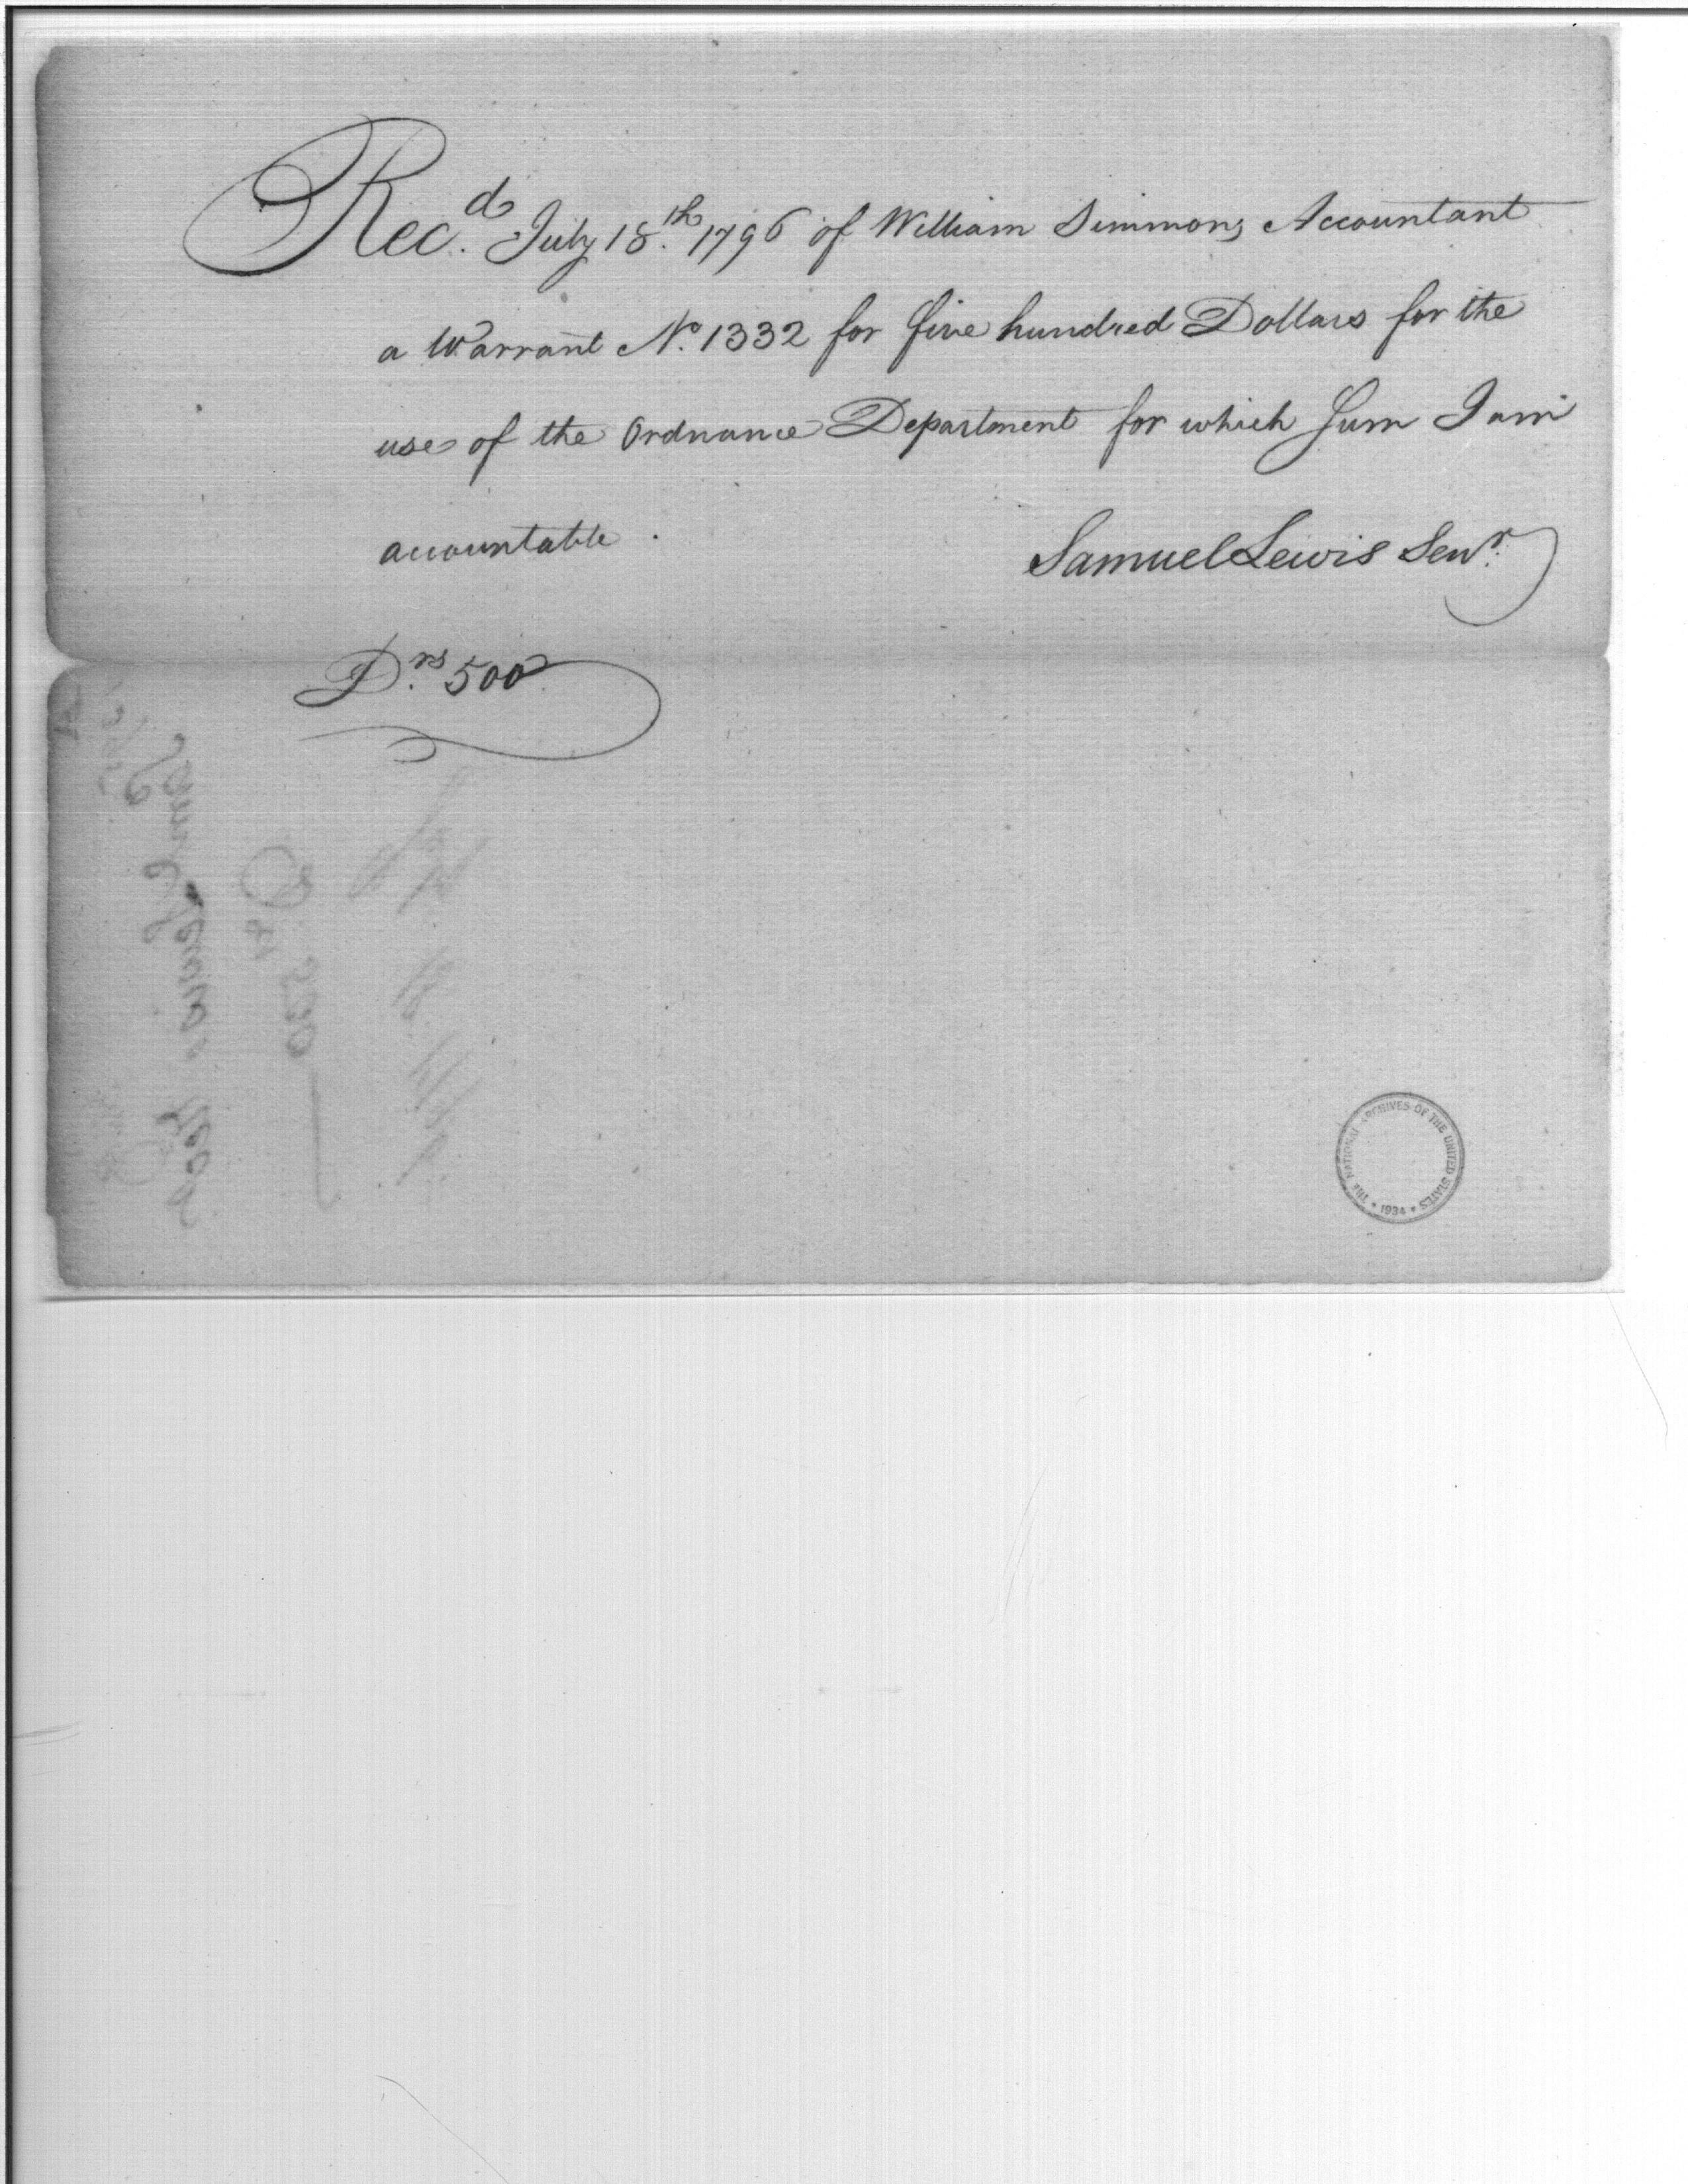 Rec.d July 18.th 1796 of William Simmons Accountant
a Warrant No. 1332 for five hundred Dollars for the
use of the Ordnance Department for which Sum I am
accountable.
Samuel Lewis Senr.
D.rs 500
THE NATIONAL ARCHIVES OF THE UNITED STATES
* 1934 *